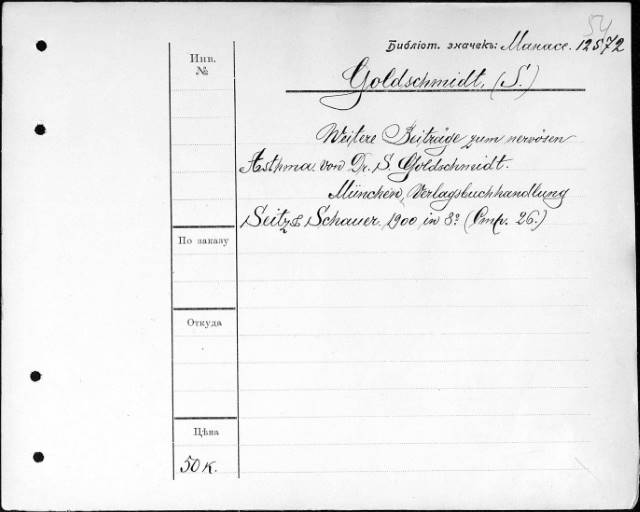 54
Библіот. значекъ: Манасс. 12572
Инв.
№
Goldschmidt, (S.)
Weitere Beiträge zum nervösen
Asthma von Dr. S. Goldschmidt.
München, Verlagsbuchhandlung
Seitz & Schauer 1900 in 8º (Стр. 26.)
По заказу
Откуда
Цѣна
50 к.